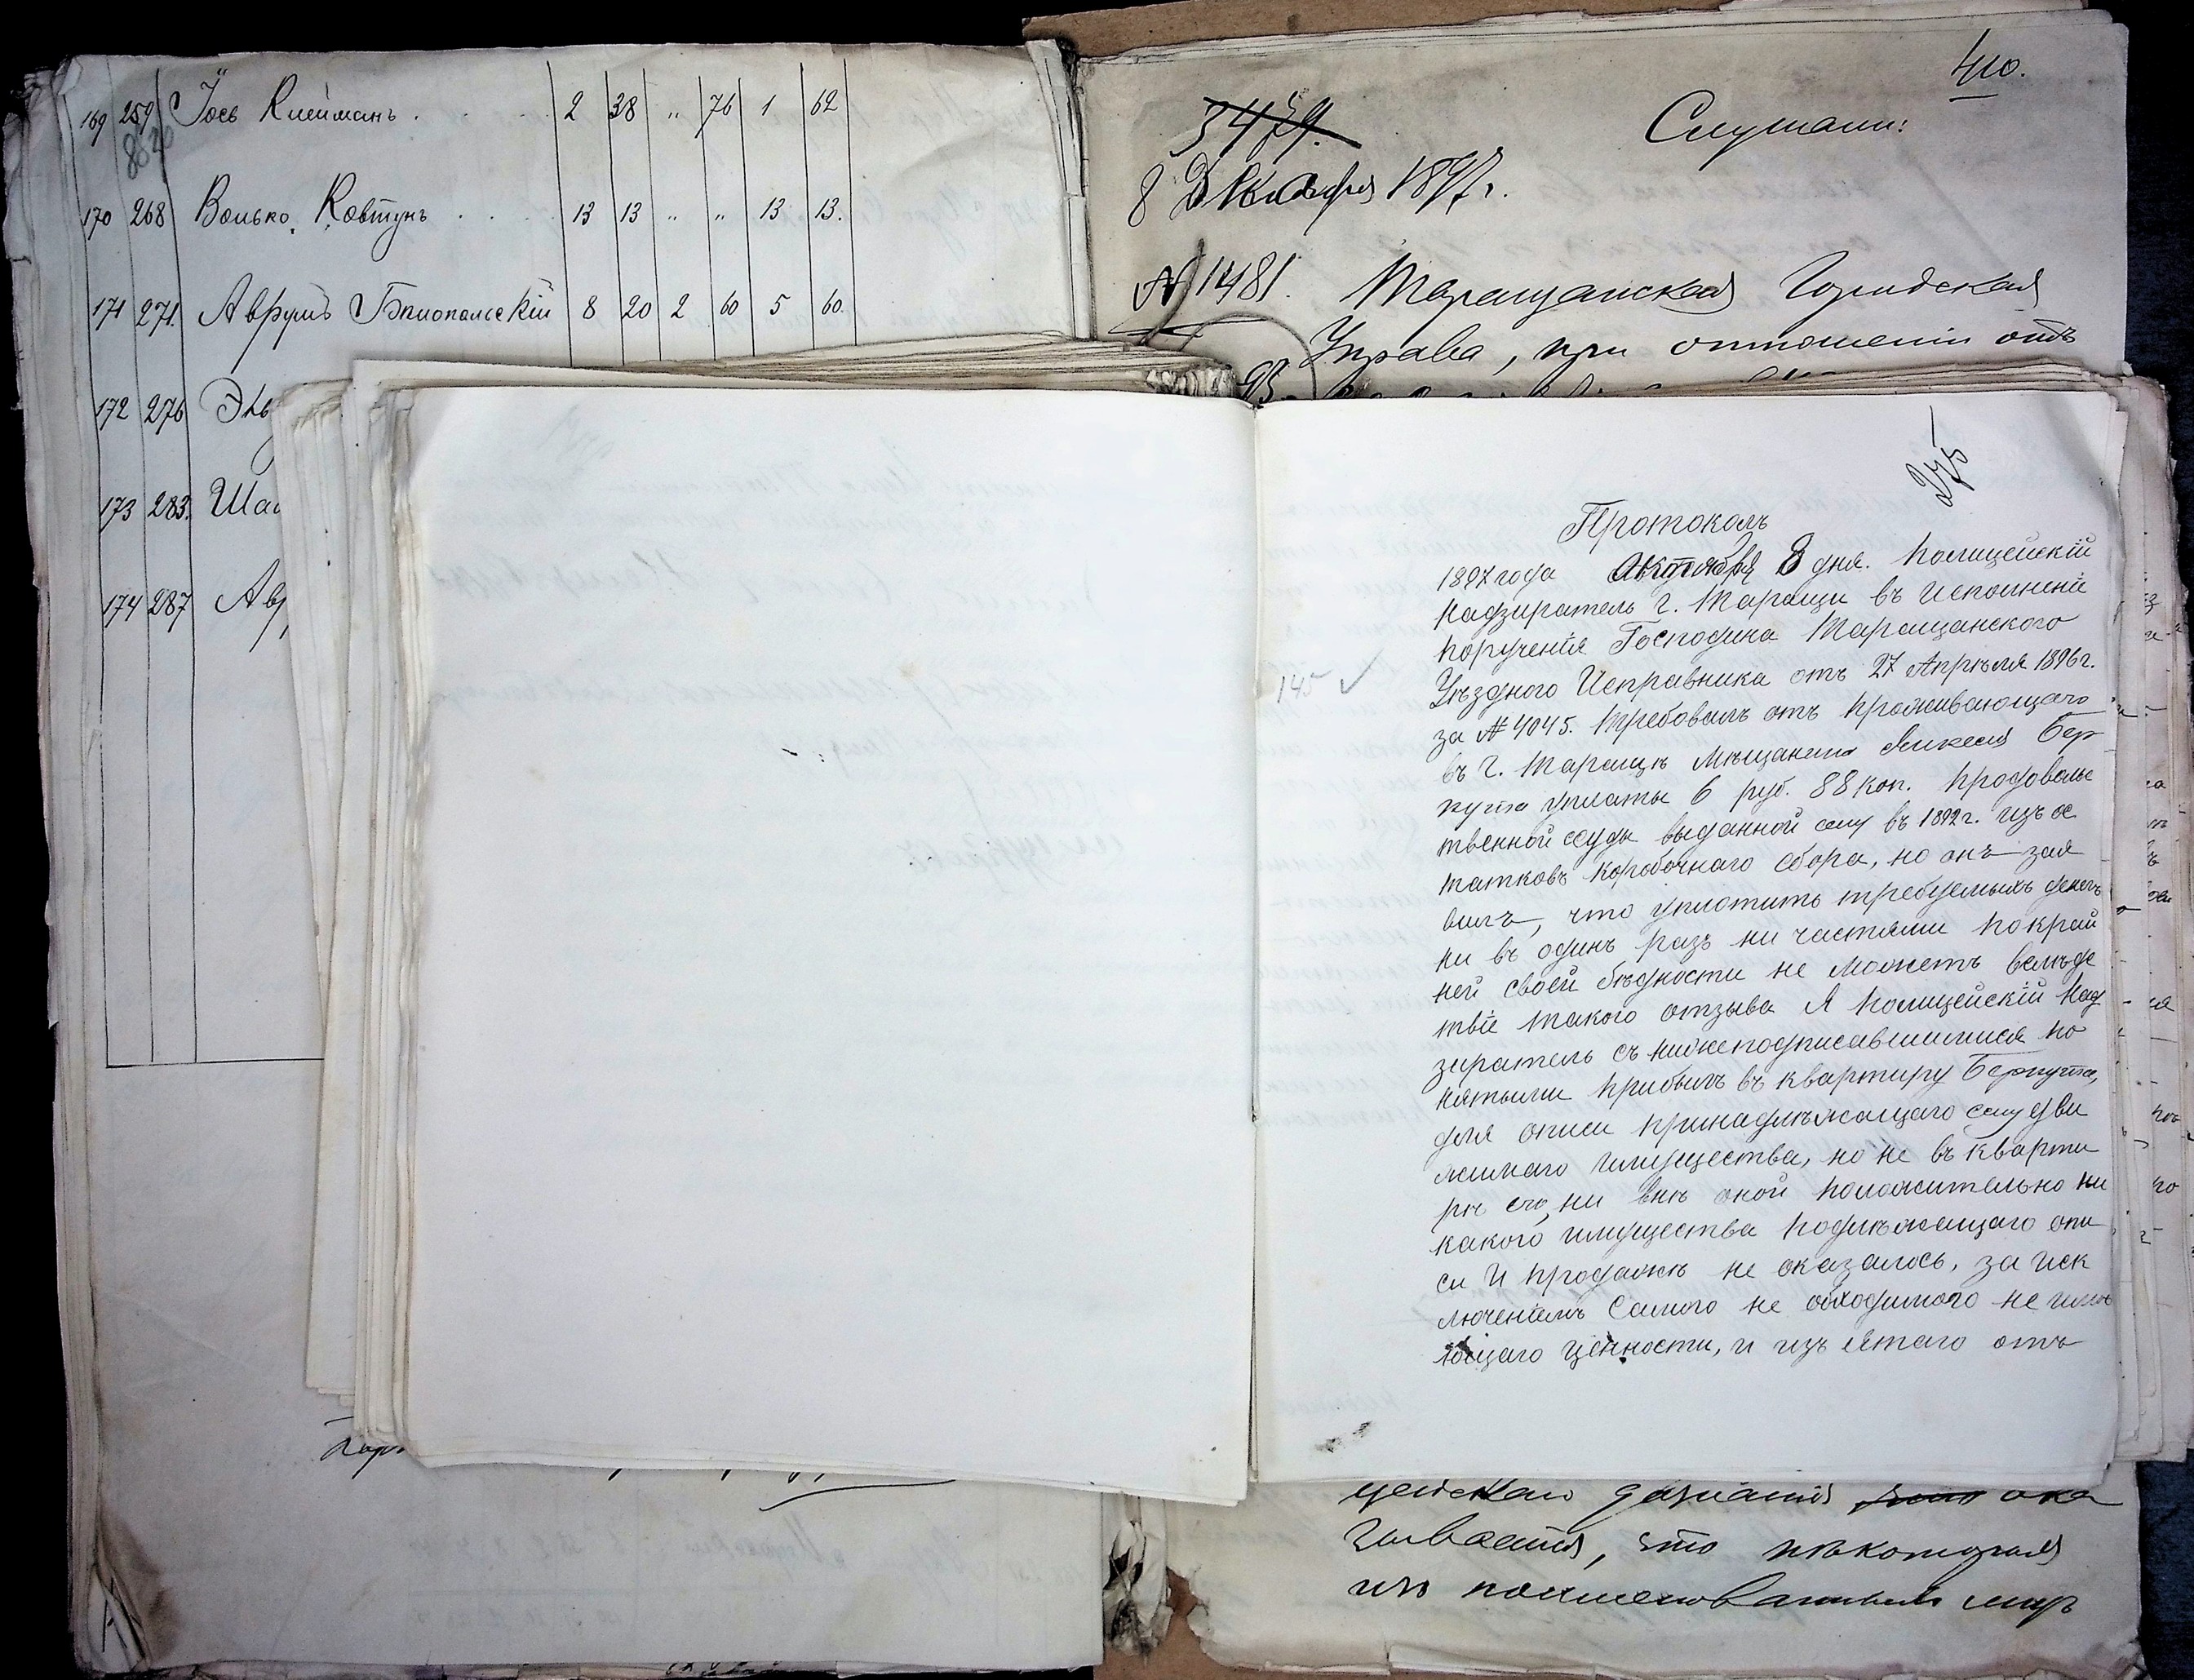 169 259 Іось Клейманъ . . . . 2 38 „ 76 1 62
8620
170 268 Волько Ковтунъ . . . . 13 13 „ „ 13 13.
171 271. Аврумъ Бялопольскій 8 20 2 60 5 60.
172 276
173 283.
174 287
410.
3479.
Слушали:
8 Декабря 1897 г.
№ 1481. Таращанская Городская
Управа, при отношеніи отъ
275
Протоколъ
1897 года Октября 8 дня. Полицейскій
Надзиратель г. Таращи въ исполненіе
порученія Господина Таращанского
Уѣздного Исправника отъ 27 Апрѣля 1896 г.
145 ✓
за № 4045. требовалъ отъ проживающаго
въ г. Таращѣ Мѣщанина Бер
кута уплаты 6 руб. 88 коп. продоволь
ственной ссуды выданной ему въ 1892 г. изъ ос
татковъ коробочнаго сбора, но онъ зая
вилъ, что уплотить требуемыхъ денегъ
ни въ одинъ разъ ни частями по край
ней своей бѣдности не можетъ вслѣдс
твіе такого отзыва Я Полицейскій Над
зиратель съ нижеподписавшимися по
нятыми прибылъ въ квартиру Беркута,
для описи принадлѣжащаго ему дви
жимаго имущества, но не въ кварти
рѣ его, ни внѣ оной положительно ни
какого имущества подлѣжащаго опи
си и продажѣ не оказалось, за иск
люченіемъ самого не обходимого не имѣ
ющаго цѣнности, и изъ этаго отъ
цейскаго дознанія ока
зывается, что нѣкоторыя
изъ поименованныхъ